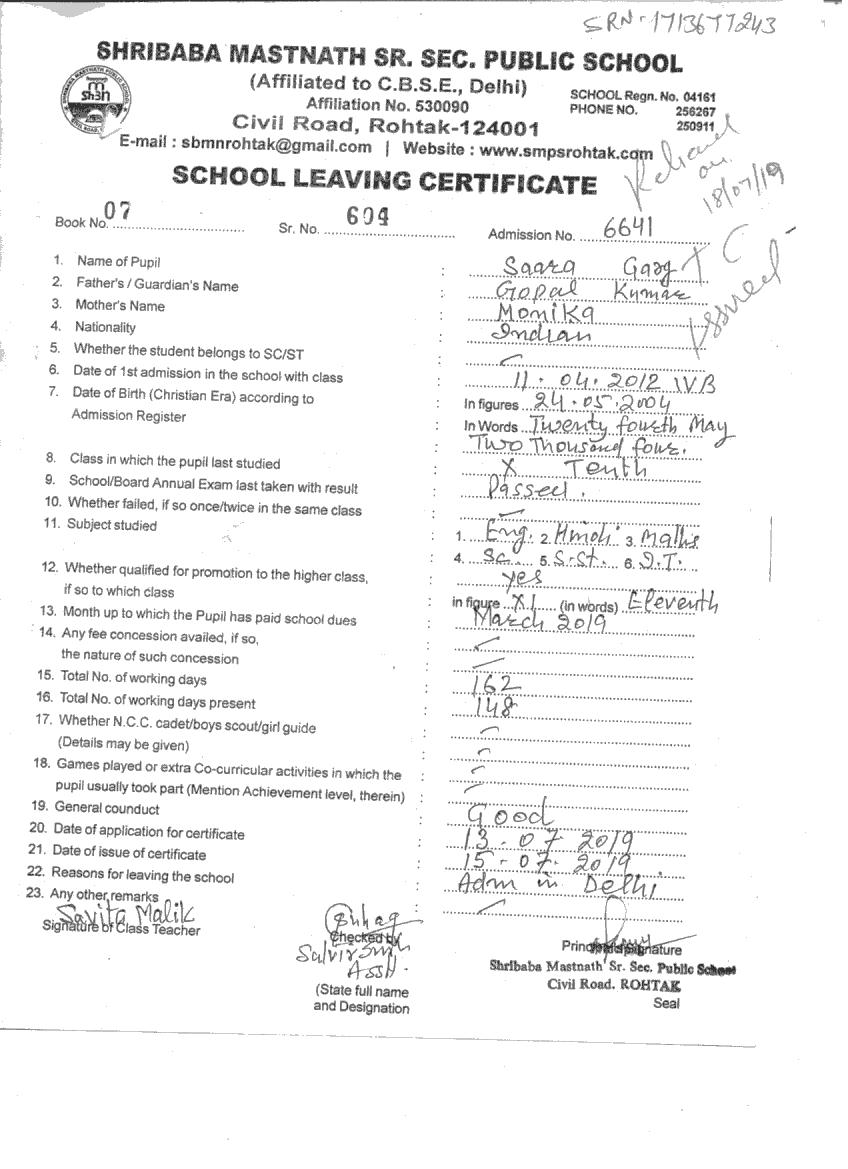 SRN-1713677243
SHRIBABA MASTNATH SR. SEC. PUBLIC SCHOOL
(Affiliated to C.B.S.E., Delhi)
Affiliation No. 530090
SCHOOL Regn. No. 04161
PHONE NO. 256267
250911
Civil Road, Rohtak-124001
E-mail : sbmnrohtak@gmail.com | Website : www.smpsrohtak.com
on
18/07/19
SCHOOL LEAVING CERTIFICATE
Book No. 07 Sr. No. 604 Admission No. 6641
TC
Issued
1. Name of Pupil : Saara Garg
2. Father's / Guardian's Name : Gopal Kumar
3. Mother's Name : Monika
4. Nationality : Indian
5. Whether the student belongs to SC/ST :
6. Date of 1st admission in the school with class : 11.04.2012 IVB
7. Date of Birth (Christian Era) according to : In figures 24.05.2004
Admission Register In Words Twenty fourth May
Two Thousand four.
8. Class in which the pupil last studied : X Tenth
9. School/Board Annual Exam last taken with result : Passed.
10. Whether failed, if so once/twice in the same class :
11. Subject studied : 1. Eng. 2. Hindi 3. Maths
4. Sc. 5. S.St. 6. I.T.
12. Whether qualified for promotion to the higher class, : yes
if so to which class in figure XI (in words) Eleventh
13. Month up to which the Pupil has paid school dues : March 2019
14. Any fee concession availed, if so, :
the nature of such concession
15. Total No. of working days : 162
16. Total No. of working days present : 148
17. Whether N.C.C. cadet/boys scout/girl guide :
(Details may be given)
18. Games played or extra Co-curricular activities in which the :
pupil usually took part (Mention Achievement level, therein) :
19. General counduct : Good
20. Date of application for certificate : 13-07-2019
21. Date of issue of certificate : 15-07-2019
22. Reasons for leaving the school : Adm in Delhi
23. Any other remarks :
Savita Malik
Signature of Class Teacher
Checked by
Principal's Signature
Shribaba Mastnath Sr. Sec. Public School
Civil Road. ROHTAK
(State full name
and Designation
Seal